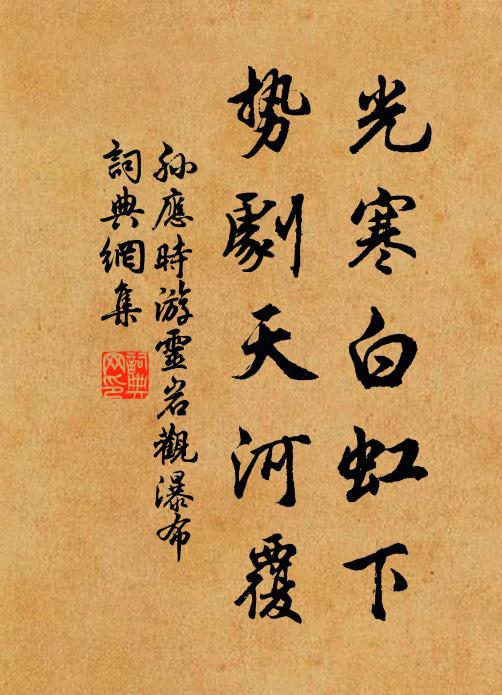 光寒白虹下
勢劇天河覆
孫應時游靈岩觀瀑布
詞典網集
詞典網印